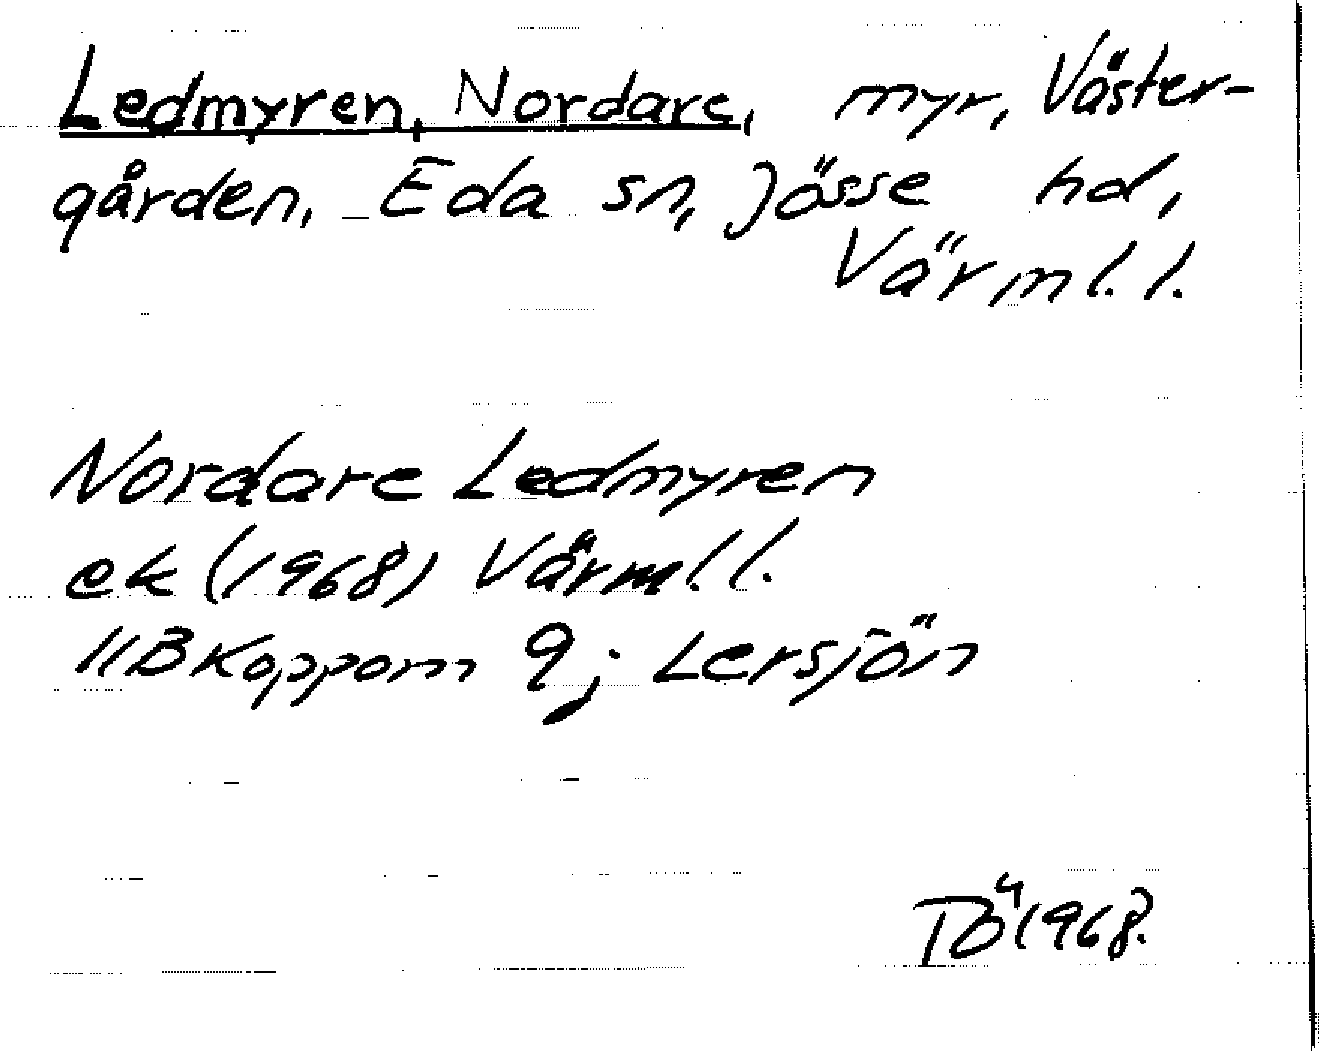 Ledmyren, Nordare, myr, Väster-
gården, Eda sn, Jösse hd,
Värml. l.
Nordare Ledmyren
ek (1968) Värml. l.
11B Koppom 9j Lersjön
TÖ 1968.